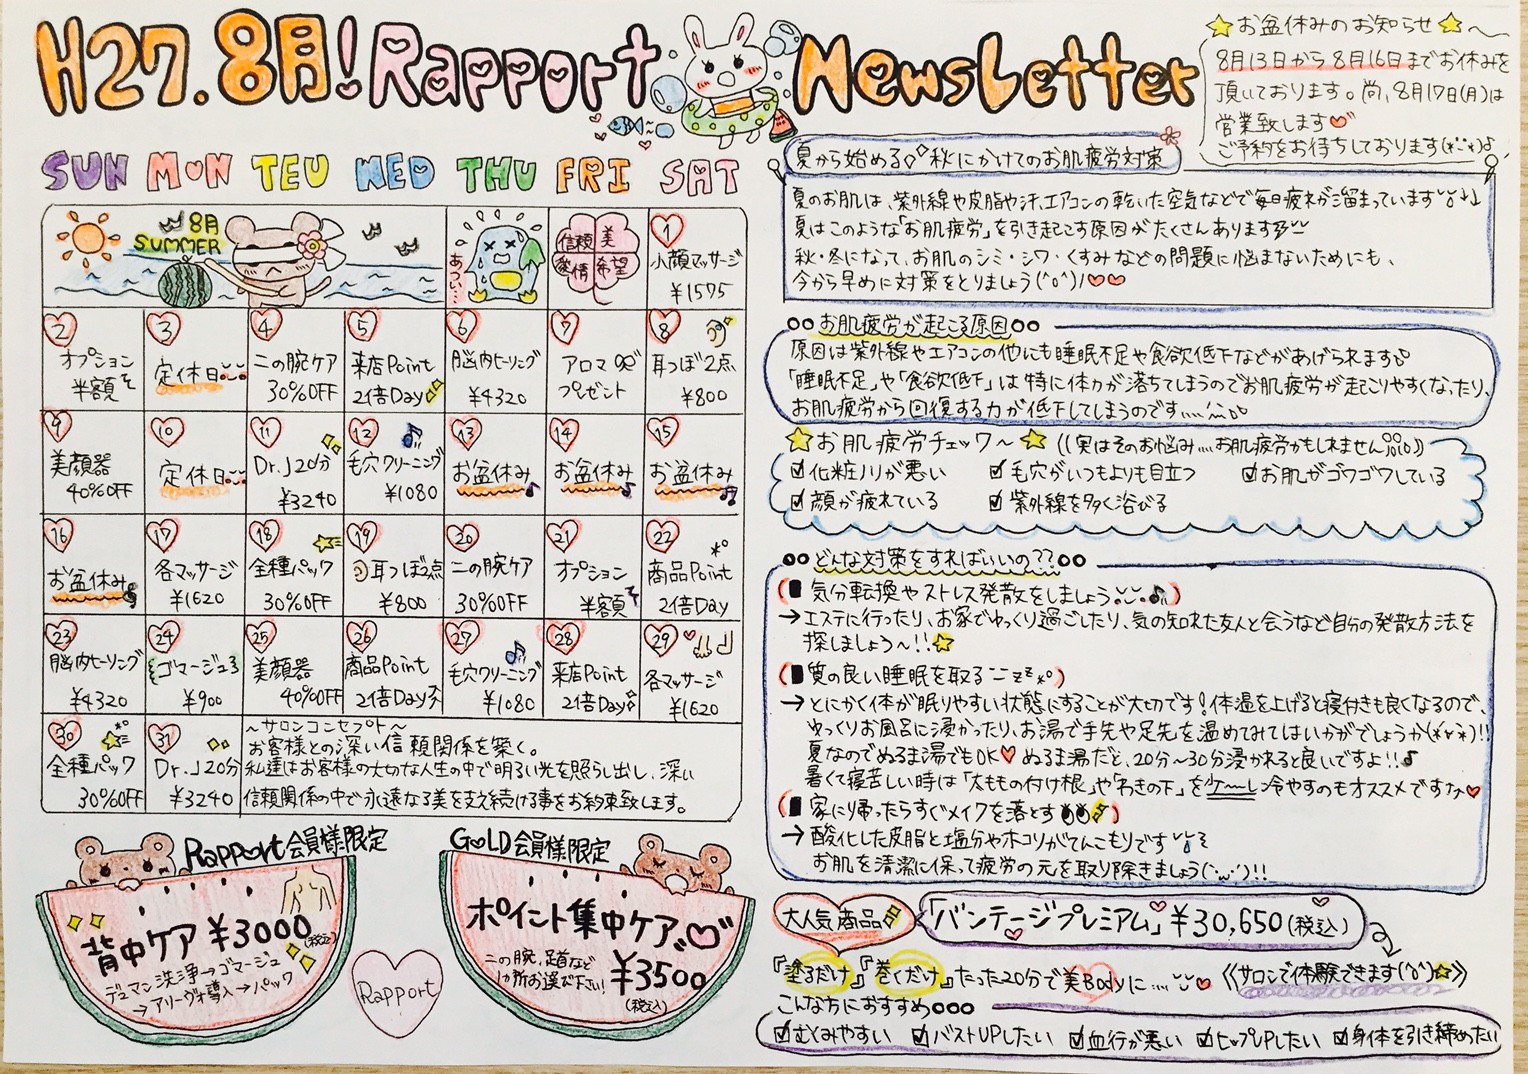 H27.8月! Rapport Newsletter
☆お盆休みのお知らせ☆〜
8月13日から8月16日までお休みを
頂いております。尚、8月17日(月)は
営業致します
ご予約をお待ちしております(*^^*)♪
SUN MON TEU WED THU FRI SAT
8月
SUMMER
あつい…
信頼 美
愛情 希望
1
小顔マッサージ
¥1575
2
オプション
半額
3
定休日
4
二の腕ケア
30%OFF
5
来店Point
2倍Day
6
脳内ヒーリング
¥4320
7
アロマ
プレゼント
8
耳つぼ2点
¥800
9
美顔器
40%OFF
10
定休日
11
Dr.J 20分
¥3240
12
毛穴クリーニング
¥1080
13
お盆休み♪
14
お盆休み♪
15
お盆休み♫
16
お盆休み
17
各マッサージ
¥1620
18
全種パック
30%OFF
19
耳つぼ2点
¥800
20
二の腕ケア
30%OFF
21
オプション
半額
22
商品Point
2倍Day
23
脳内ヒーリング
¥4320
24
ゴマージュ
¥900
25
美顔器
40%OFF
26
商品Point
2倍Day
27
毛穴クリーニング
¥1080
28
来店Point
2倍Day
29
各マッサージ
¥1620
30
全種パック
30%OFF
31
Dr.J 20分
¥3240
〜サロンコンセプト〜
お客様との深い信頼関係を築く。
私達はお客様の大切な人生の中で明るい光を照らし出し、深い
信頼関係の中で永遠なる美を支え続ける事をお約束致します。
Rapport会員様限定
背中ケア ¥3000(税込)
デュマン洗浄→ゴマージュ
→アリーヴォ導入→パック
Rapport
GOLD会員様限定
ポイント集中ケア
二の腕、足首など
1ヵ所お選び下さい!
¥3500
(税込)
夏から始める 秋にかけてのお肌疲労対策
夏のお肌は、紫外線や皮脂や汗、エアコンの乾いた空気などで毎日疲れが溜まっています↓↓
夏はこのような「お肌疲労」を引き起こす原因がたくさんあります
秋・冬になって、お肌のシミ・シワ・くすみなどの問題に悩まないためにも、
今から早めに対策をとりましょう(^o^)/♥♥
お肌疲労が起こる原因
原因は紫外線やエアコンの他にも睡眠不足や食欲低下などがあげられます
「睡眠不足」や「食欲低下」は特に体力が落ちてしまうのでお肌疲労が起こりやすくなったり、
お肌疲労から回復する力が低下してしまうのです……
☆お肌疲労チェック〜☆((実はそのお悩み….お肌疲労かもしれません))
☑化粧ノリが悪い ☑毛穴がいつもよりも目立つ ☑お肌がゴワゴワしている
☑顔が疲れている ☑紫外線を多く浴びる
どんな対策をすればいいの??
(■気分転換やストレス発散をしましょう♪)
→エステに行ったり、お家でゆっくり過ごしたり、気の知れた友人と会うなど自分の発散方法を
探しましょう〜!!☆
(■質の良い睡眠を取る zz*°)
→とにかく体が眠りやすい状態にすることが大切です!体温を上げると寝付きも良くなるので、
ゆっくりお風呂に浸かったり、お湯で手先や足先を温めてみてはいかがでしょうか(*v*)!!
夏なのでぬるま湯でもOK♥ぬるま湯だと、20分〜30分浸かれると良いですよ!!♪
暑くて寝苦しい時は「太ももの付け根」や「わきの下」を冷やすのもオススメです♥
(■家に帰ったらすぐメイクを落とす)
→酸化した皮脂と塩分やホコリがてんこもりです
お肌を清潔に保って疲労の元を取り除きましょう(^ω^)!!
大人気商品 「バンテージプレミアム」¥30,650(税込)
『塗るだけ』『巻くだけ』たった20分で美Bodyに….♥《サロンで体験できます(^o^)☆》
こんな方におすすめ○○○
☑むくみやすい ☑バストUPしたい ☑血行が悪い ☑ヒップUPしたい ☑身体を引き締めたい